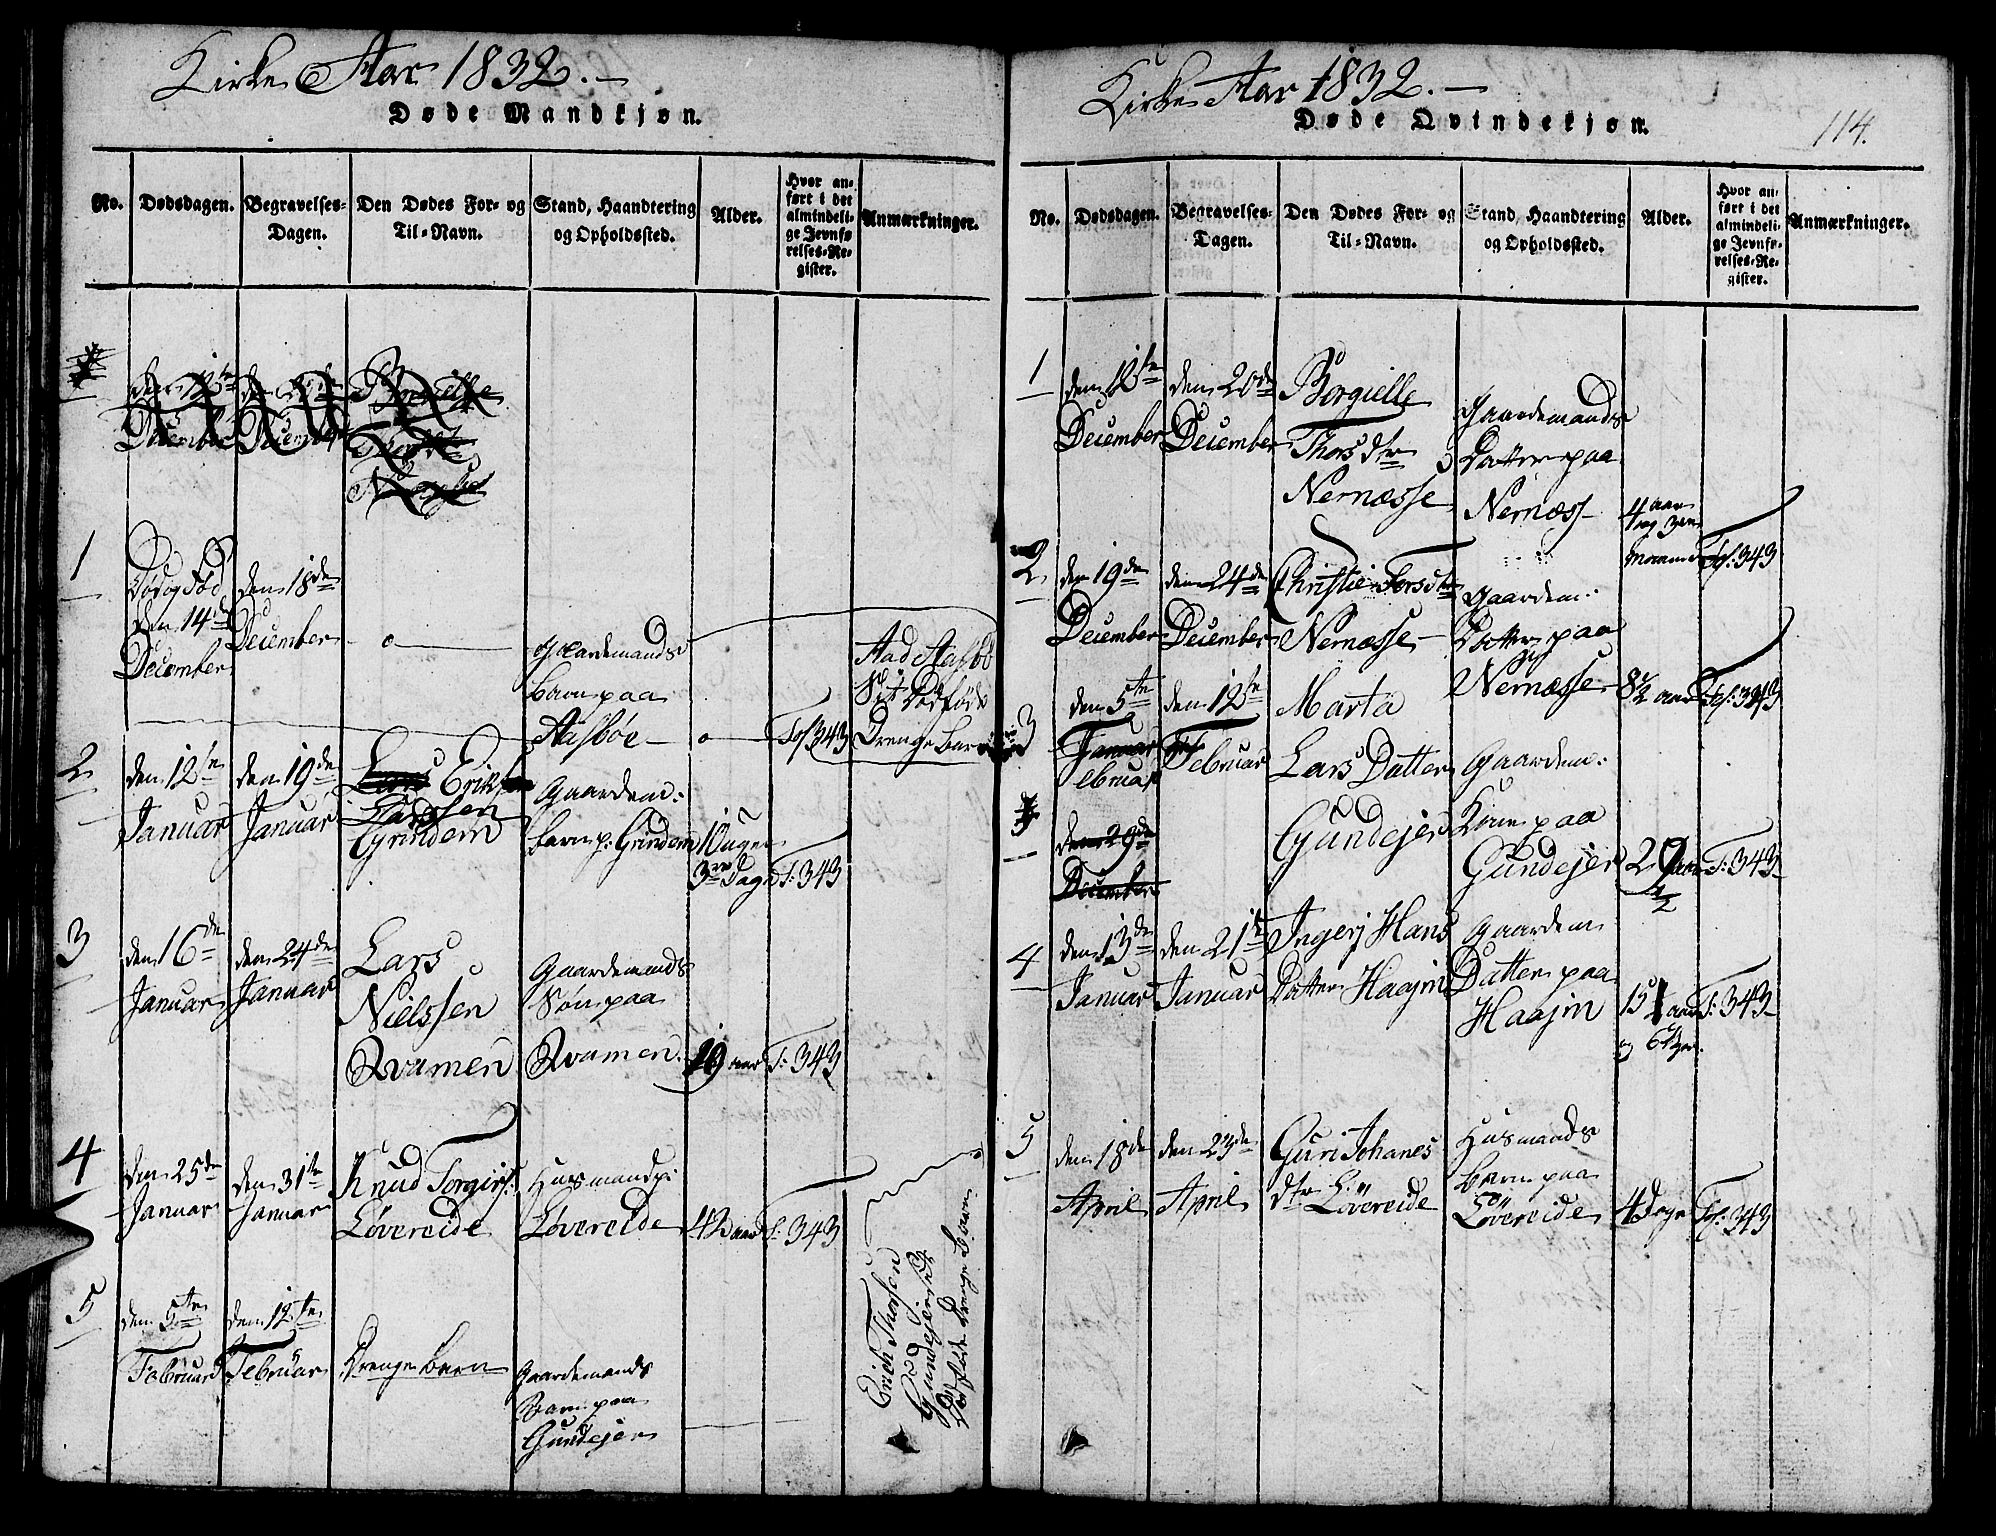 Kirke Aar 1832.
Døde Mandkjøn.
No. Dødsdagen. Begravelses-Dagen. Den Dødes For- og Til-Navn. Stand, Haandtering og Opholdssted. Alder. Hvor anført i det almindelige Jevnførelses-Register. Anmærkninger.
den 12te December
December
1
Død og Fød den 14de December
den 18de December
Gaardemands barn paa Aasbøe
Fol 343
Drenge Barn
2
den 12te Januar
den 19de Januar
Lars Erik
Larssen
Grindem
Gaardem: barn p: Grindem
10 uger 3 Dage
F: 343
3
den 16de Januar
den 24de Januar
Lars Nielssen Qvamen
Gaardemands Søn paa Qvamen.
19 aar
F: 343
4
den 25de Januar
den 31te Januar
Knud Torgiers: Løvereide
Husmand p: Løvereide
42 aar
F: 343
5
den 5te Februar
den 12te Februar
Drenge barn
Gaardemands Barn paa Gundejer
Erich Thorsen Gundejersdt Dødføde Drenge barn
Kirke Aar 1832.
Døde Qvindekjøn.
114.
No. Dødsdagen. Begravelses-Dagen. Den Dødes For- og Til-Navn. Stand, Haandtering og Opholdssted. Alder. Hvor anført i det almindelige Jevnførelses-Register. Anmærkninger.
1
den 12te December
den 20de December
Borgielle Thorsdtr Nernæsse
Gaardemands Datter paa Nernæss
4 aar og 3
Fol: 343
2
den 19de December
den 24de December
Christie Torsdtr Nernæsse
Gaardem: Datter paa Nernæsse
8 1/2 aar
Fol: 343
3
den 5te
Januar
Februar
den 12te Februar
Marta Lars Datter Gundejer
Gaardem: Kone paa Gundejer
29 1/2 aar
F: 343
den 29de December
4
den 13de Januar
den 21te Januar
Ingerj Hans Datter Haajm
Gaardem Datter paa Haajm
15 aar og 6 Uger
F: 343
5
den 18de April
den 23de April
Guri Johanes dtr Løvereide
Husmands barn paa Løvereide
4 Dage
Fol: 343